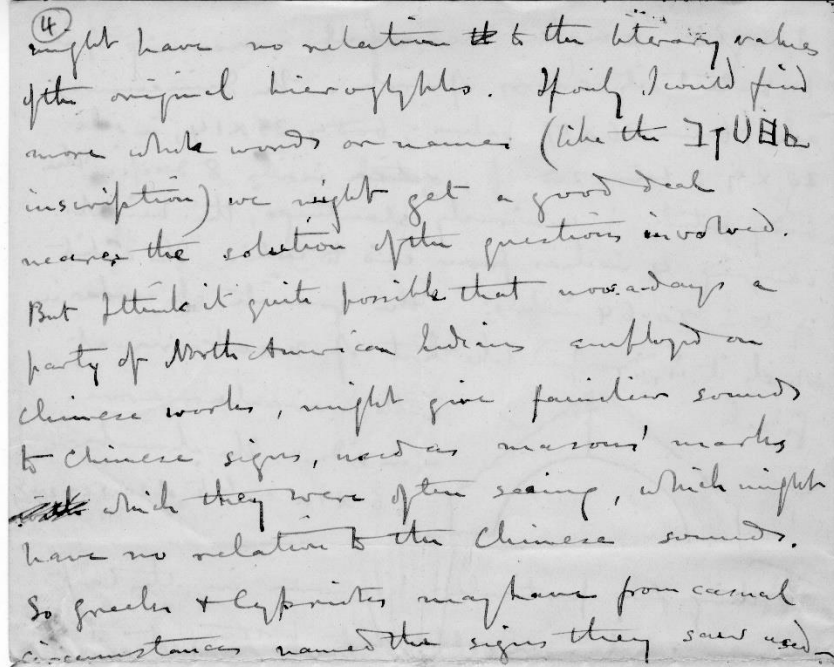 ④
might have no relation to the literary values
of the original hieroglyphs. If only I could find
more whole words or names (like the
inscription) we might get a good deal
nearer the solution of the questions involved.
But I think it quite possible that now-a-days a
party of North American Indians employed on
Chinese works, might give familiar sounds
to Chinese signs, used as masons' marks
which they were often seeing, which might
have no relation to the Chinese sounds.
So Greeks + Cypriotes may have from casual
circumstances named the signs they saw used